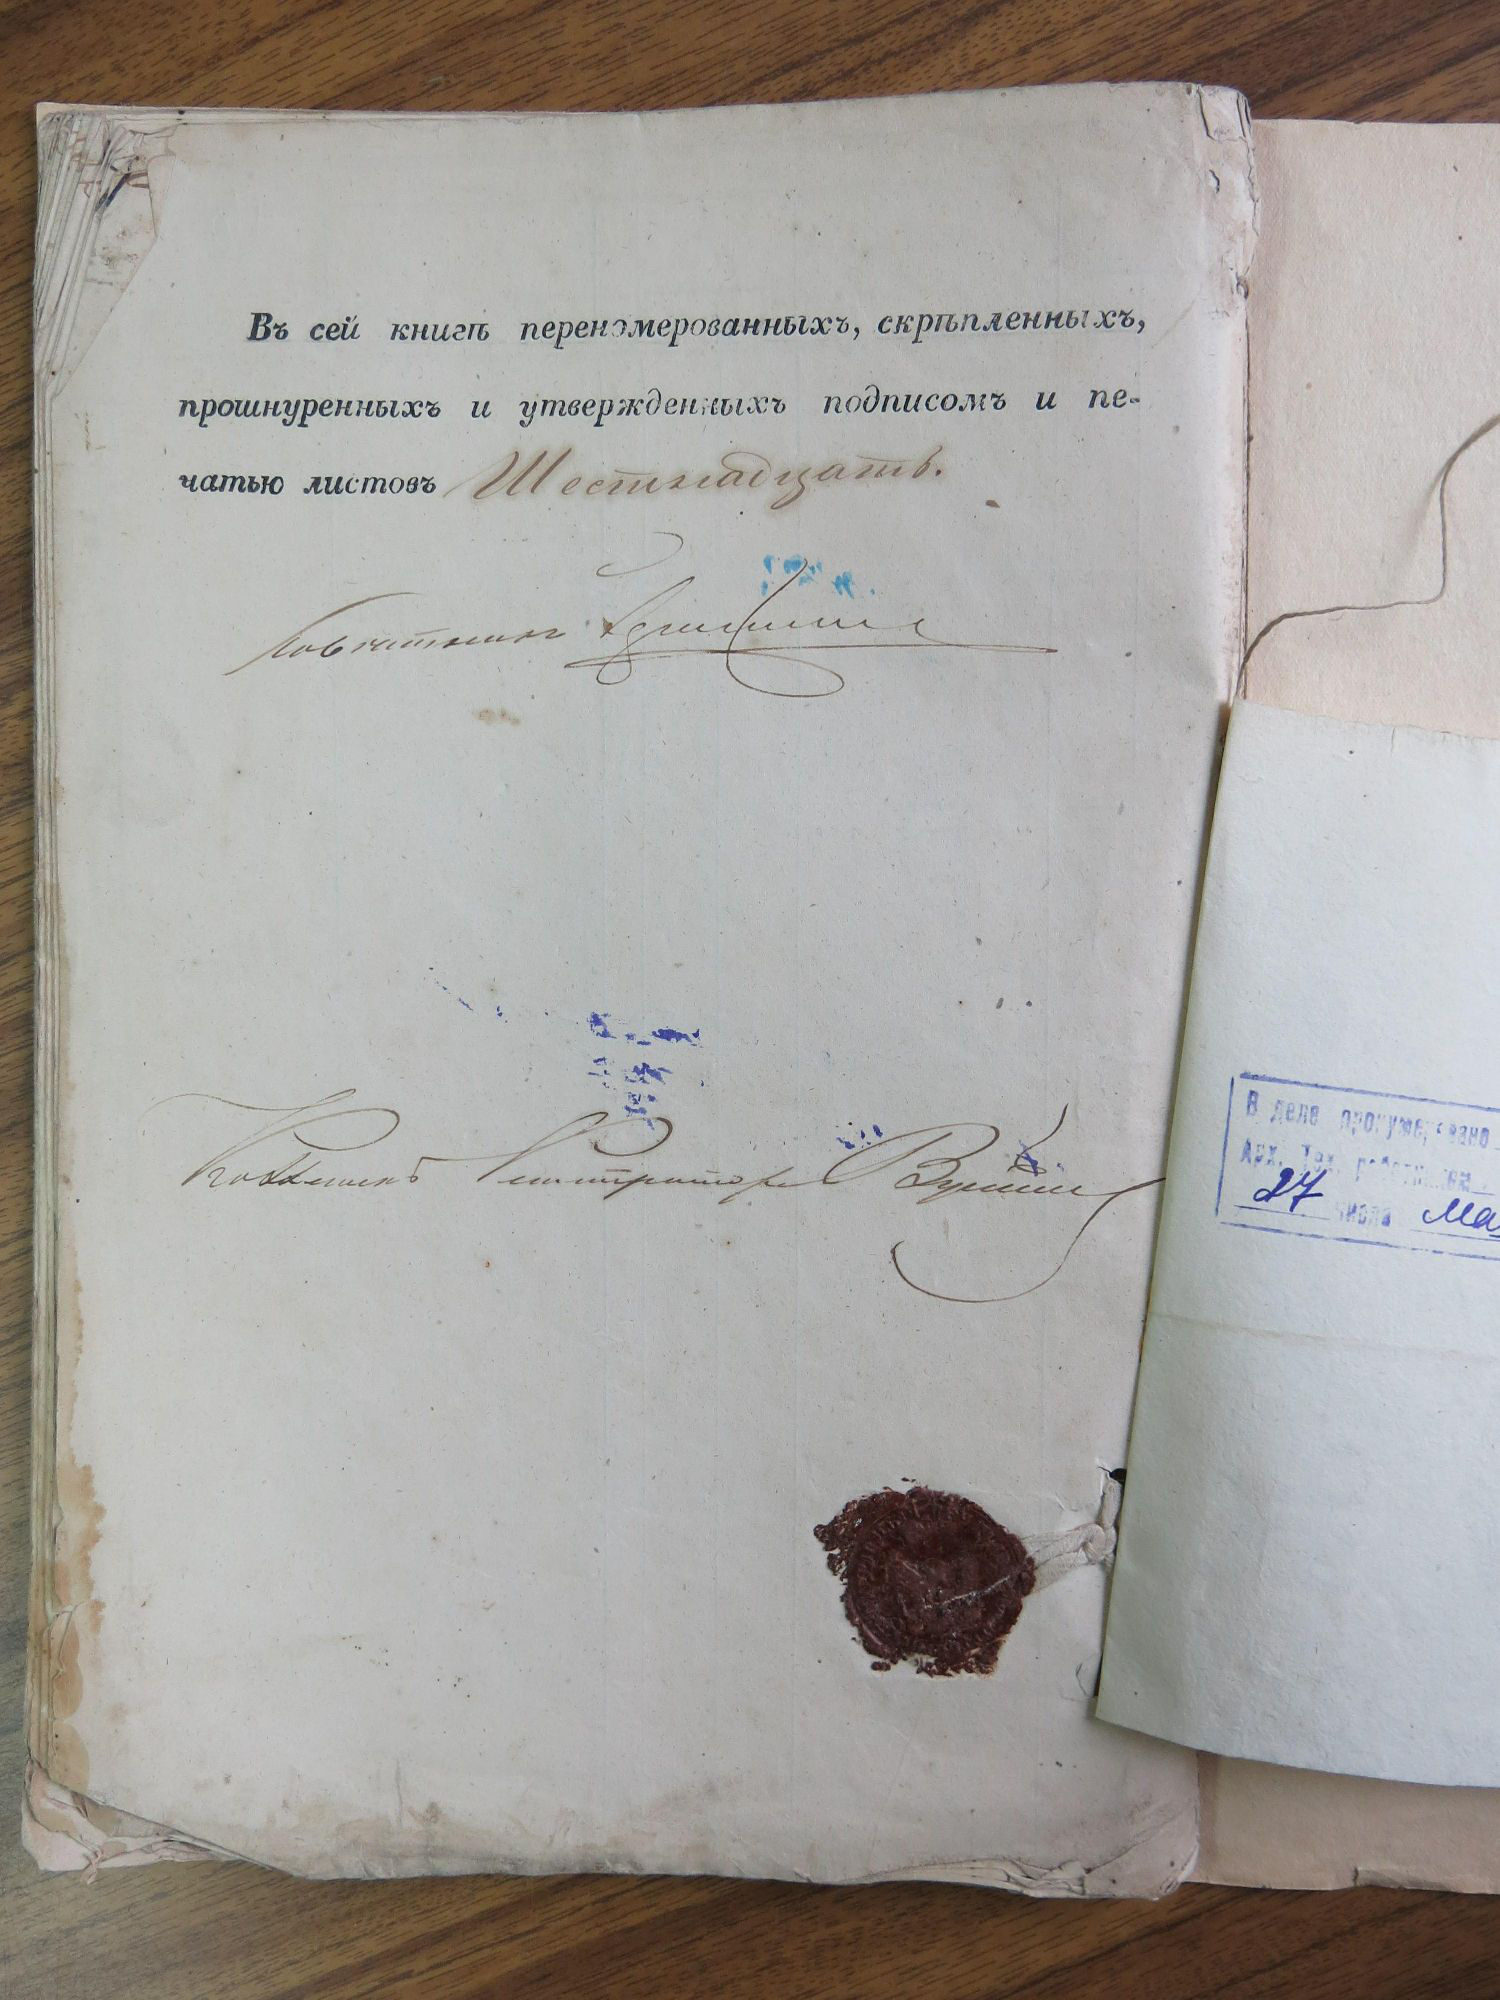 Въ сей книгѣ переномерованныхъ, скрѣпленныхъ,
прошнуренныхъ и утвержденныхъ подписомъ и пе-
чатью листовъ Шестнадцать.
Совѣтникъ
Коллежскій Регистраторъ
В деле пронумеровано
Арх. Тех. работником
27 числа Ма